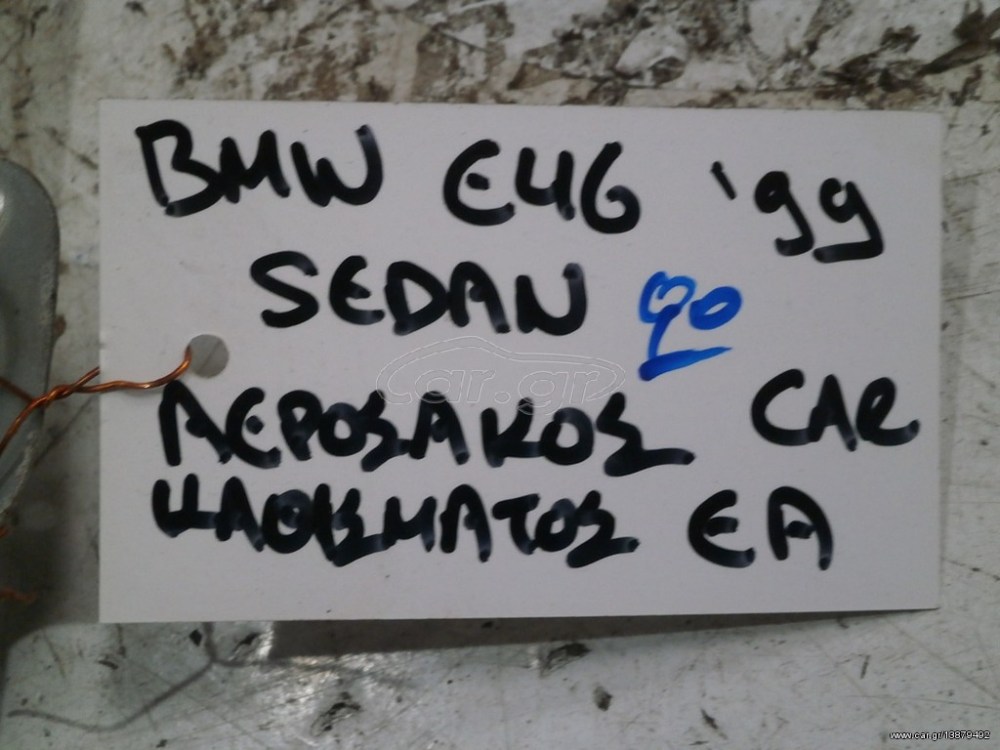 BMW E46 '99
SEDAN 90
ΑΕΡΟΣΑΚΟΣ CAR
ΚΑΘΙΣΜΑΤΟΣ ΕΑ
car.gr
www.car.gr/13879402